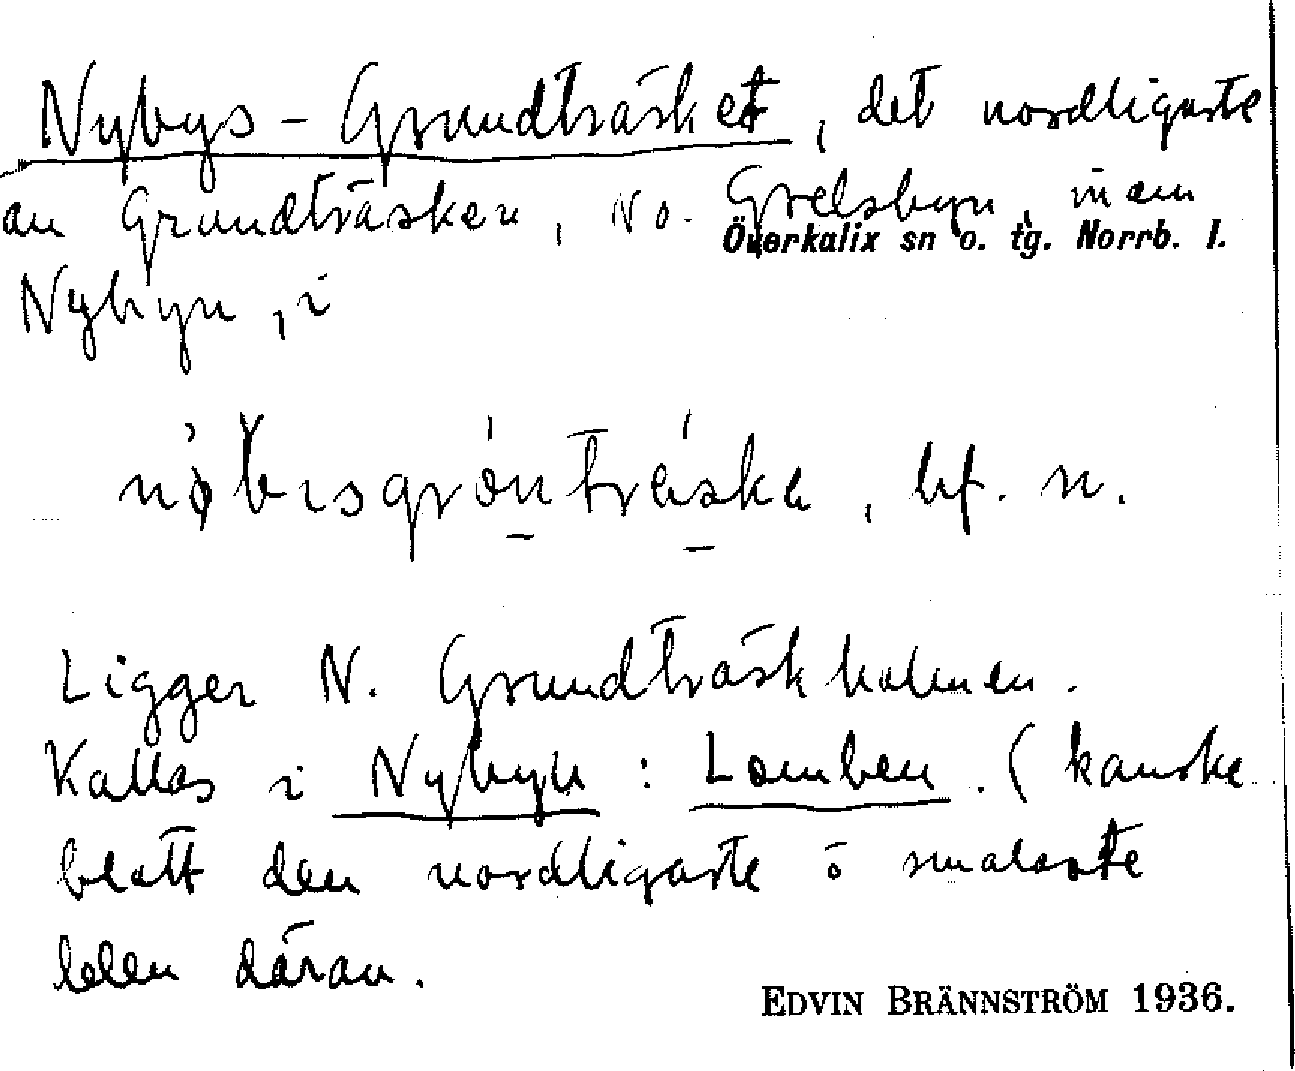 Nybys-Grundträsket, det nordligaste
av Grundträsken, NO. Grelsbyn, inom
Överkalix sn o. tg. Norrb. l.
Nybyn, i
bf. n.
Ligger N. Grundträskholmen.
Kallas i Nybyn: Lomben. (kanske
blott den nordligaste o smalaste
delen därav.
EDVIN BRÄNNSTRÖM 1936.